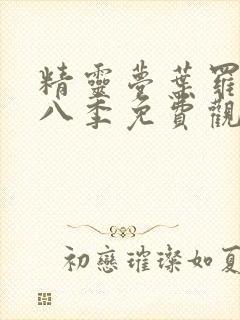 精靈夢葉羅
八季免費觀
初戀璀璨如夏